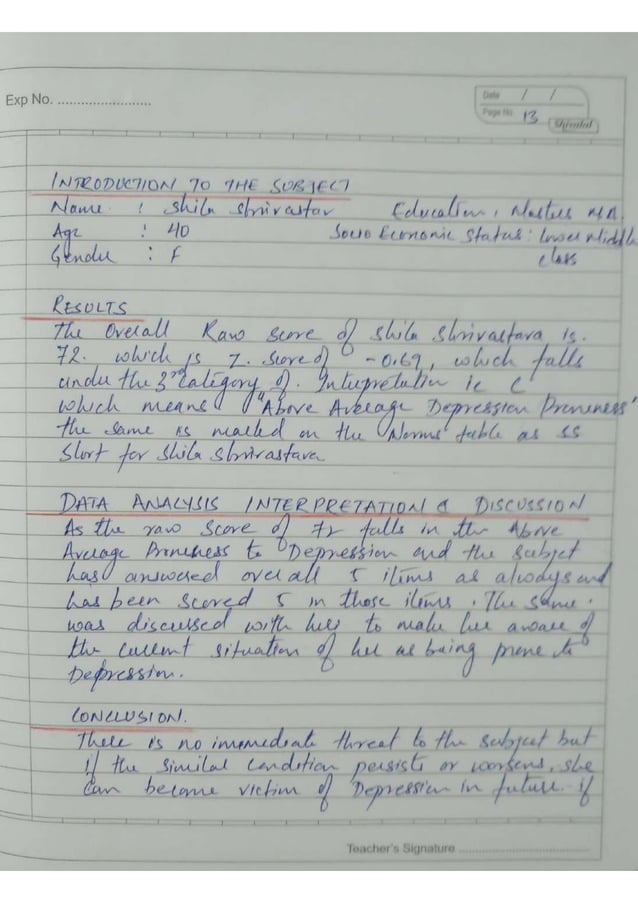 Exp No. ........................
Date / /
Page No. 13
Shivalal
INTRODUCTION TO THE SUBJECT
Name : Shila Shrivastav Education : Masters M.A.
Age : 40 Socio Economic Status : Lower Middle
Gender : F class
RESULTS
The Overall Raw score of Shila Shrivastava is.
72. which is Z. Score of -0.69, which falls
under the 3rd Category of. Interpretation ie C
which means "Above Average Depression Proneness"
the same is marked on the Norms table as SS
Short for Shila Shrivastava
DATA ANALYSIS INTERPRETATION & DISCUSSION
As the raw Score of 72 falls in the Above
Average Proneness to Depression and the Subject
has answered over all 5 items as always and
has been scored 5 in those items. The same.
was discussed with her to make her aware of
the current situation of her as being prone to
Depression.
CONCLUSION.
There is no immediate threat to the subject but
if the similar condition persists or worsens, she
can become victim of Depression in future. if
Teacher's Signature ................................